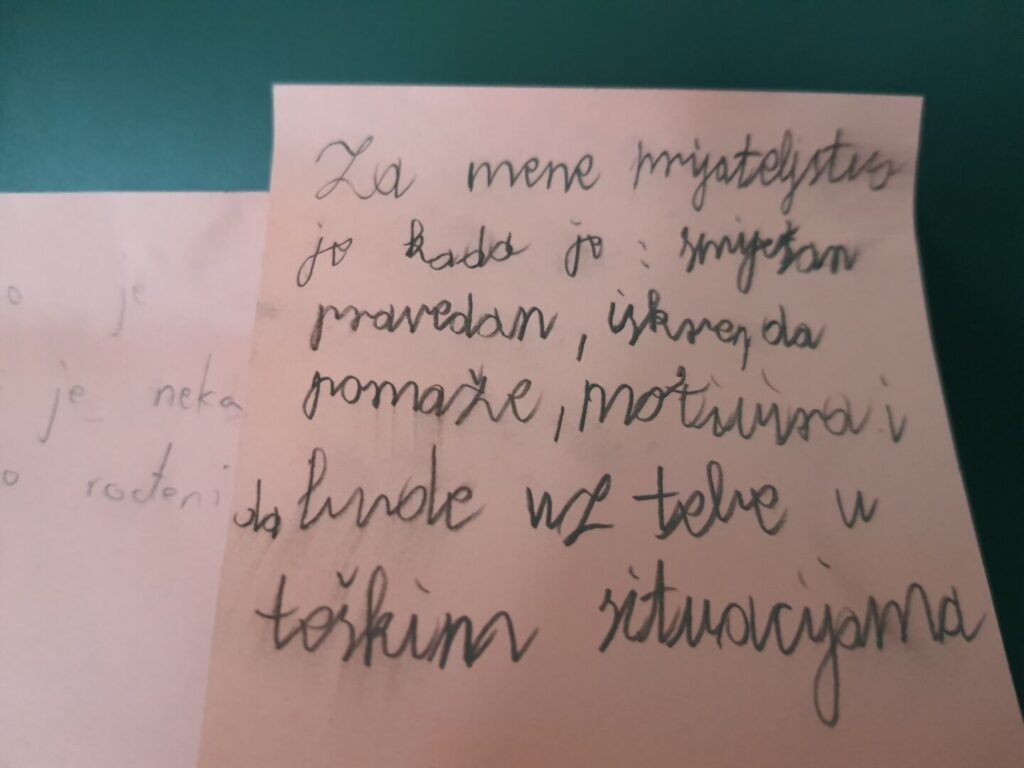 Za mene prijateljstvo
je kada je : smiješan
pravedan, iskren, da
pomaže, motivira i
da bude uz tebe u
teškim situacijama
o je
je neka
o rođeni